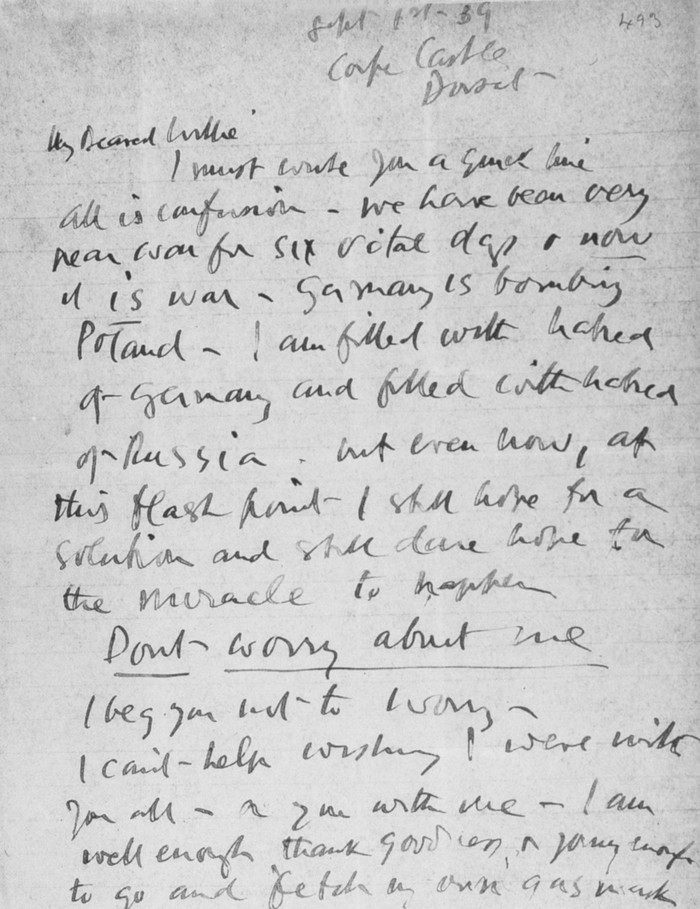 Sept 1st - 39
493
Corfe Castle
Dorset -
My Dearest Willie
I must write you a quick line
all is confusion - we have been very
near war for six vital days & now
it is war - Germany is bombing
Poland - I am filled with hatred
of Germany and filled with hatred
of Russia . but even now, at
this flash point - I still hope for a
solution and still dare hope for
the miracle to happen
Dont worry about me
I beg you not to worry -
I can't help wishing I were with
you all - or you with me - I am
well enough thank goodness, & young enough
to go and fetch my own gas mask